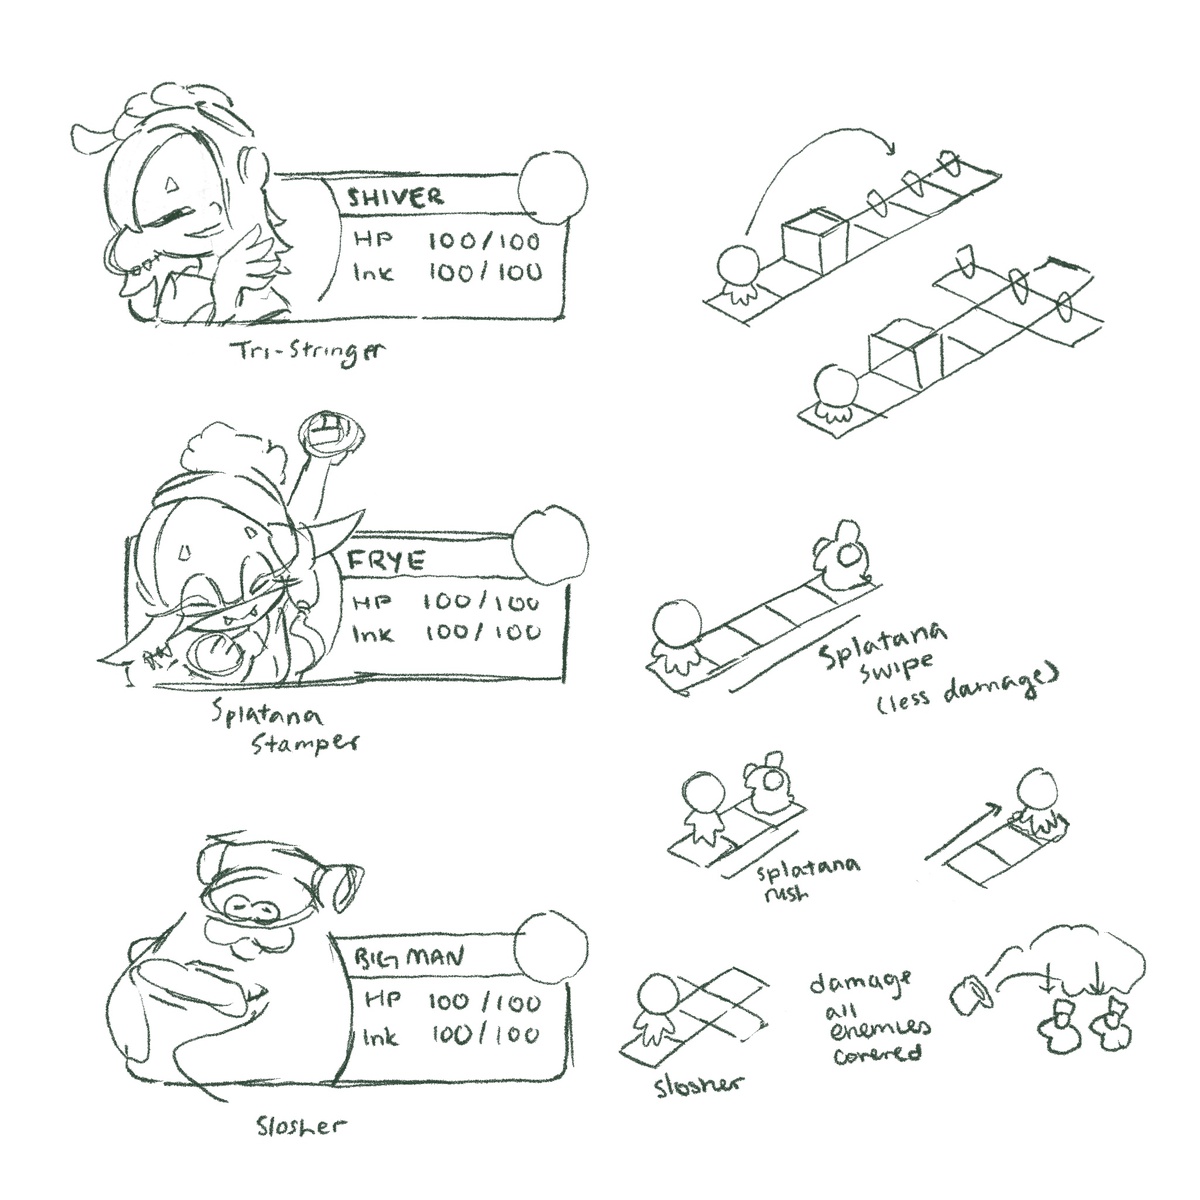 SHIVER
HP 100/100
Ink 100/100
Tri-Stringer
FRYE
HP 100/100
Ink 100/100
Splatana
Stamper
Splatana
swipe
(less damage)
splatana
rush
BIG MAN
HP 100/100
Ink 100/100
Slosher
slosher
damage
all
enemies
covered